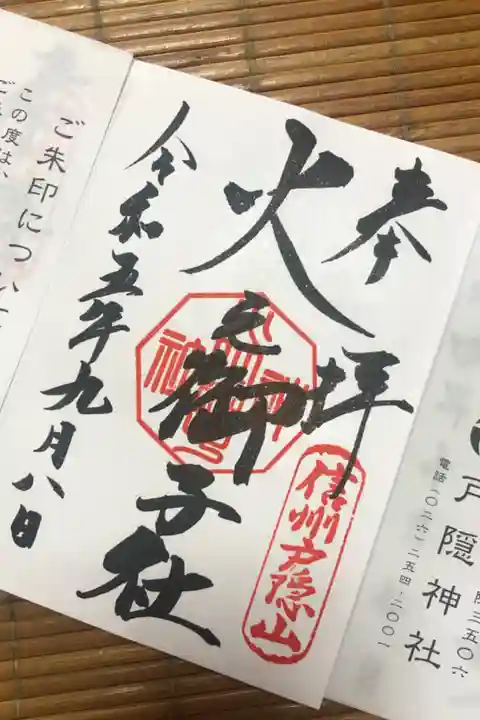 奉拝
信州戸隠山
火之御子社
令和五年九月八日
ご朱印につい
この度は、
戸隠神社
電話〇二六-二五四-二〇〇一
三五〇六